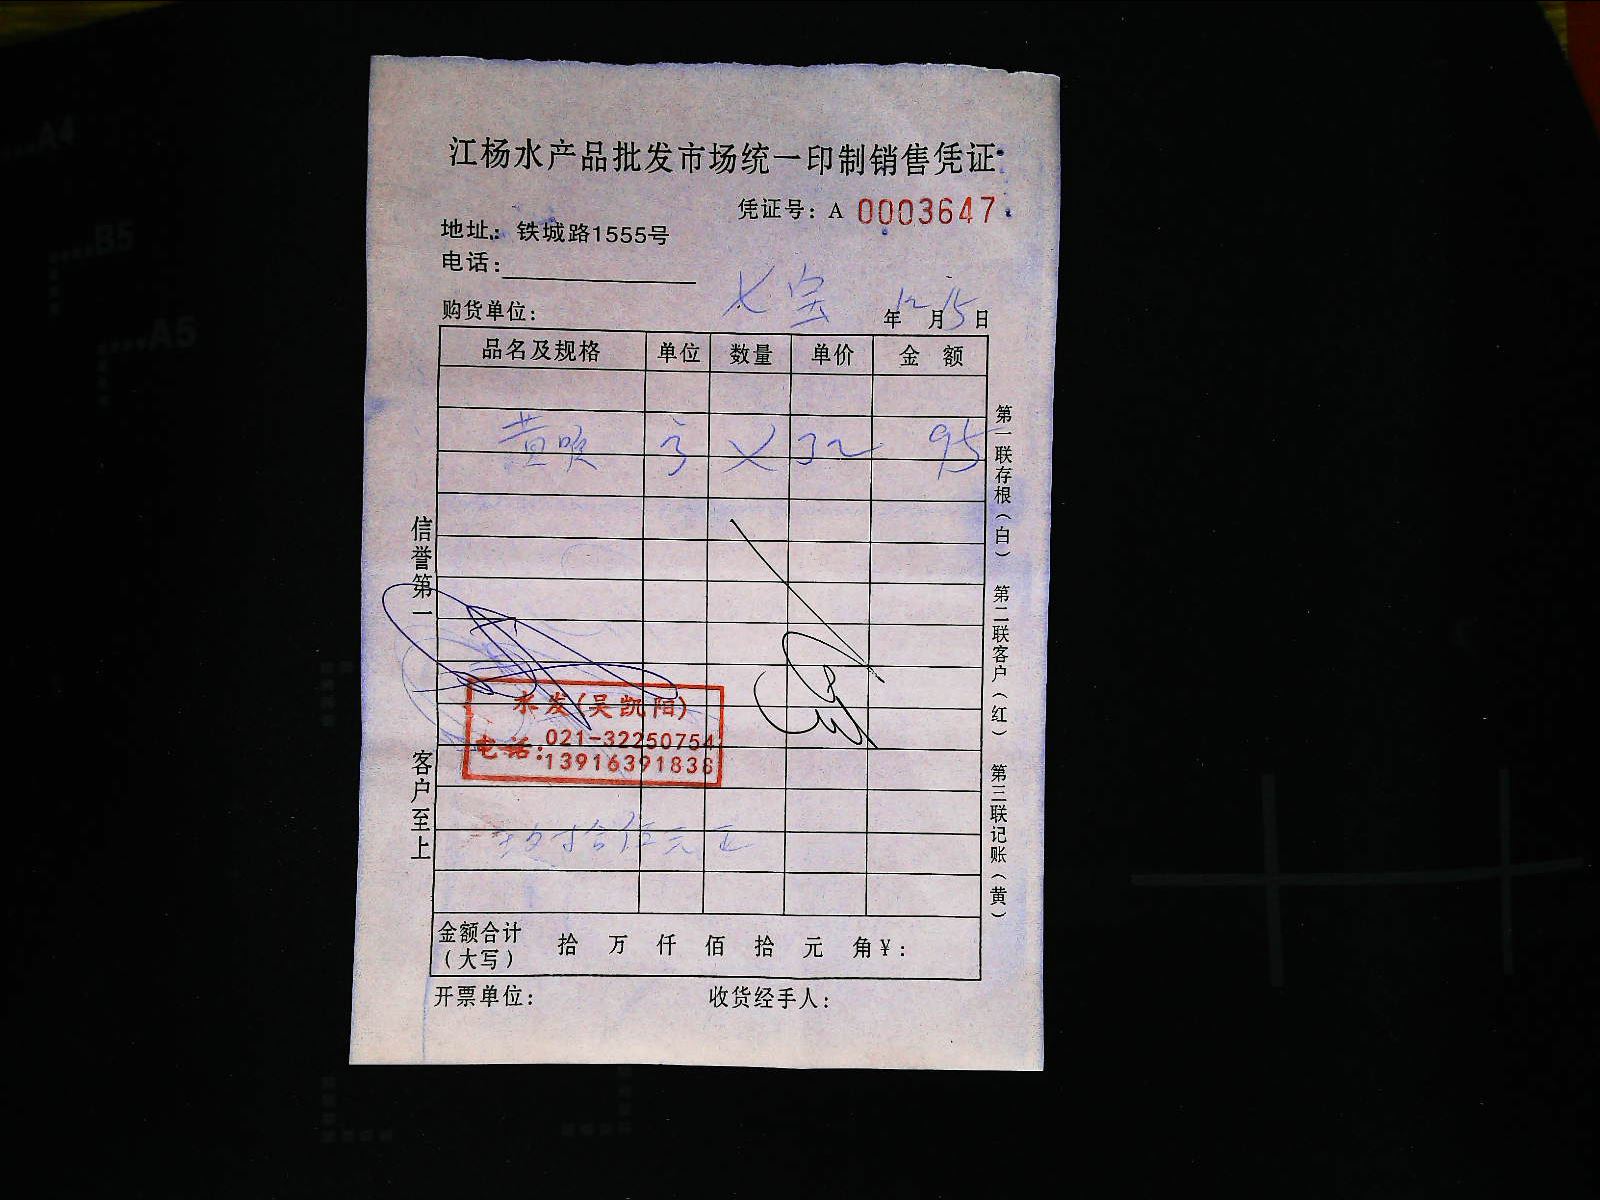 江杨水产品批发市场统一印制销售凭证
凭证号: A 0003647
地址: 铁城路1555号
电话:
七宝
购货单位: 年12月15日
品名及规格 单位 数量 单价 金 额
黄喉 32 95
第一联存根(白) 第二联客户(红) 第三联记账(黄)
信誉第一 客户至上
水发(吴凯阳)
电话: 021-32250754
13916391838
元正
金额合计
(大写) 拾 万 仟 佰 拾 元 角 ¥:
开票单位: 收货经手人:
A4
B5
A5